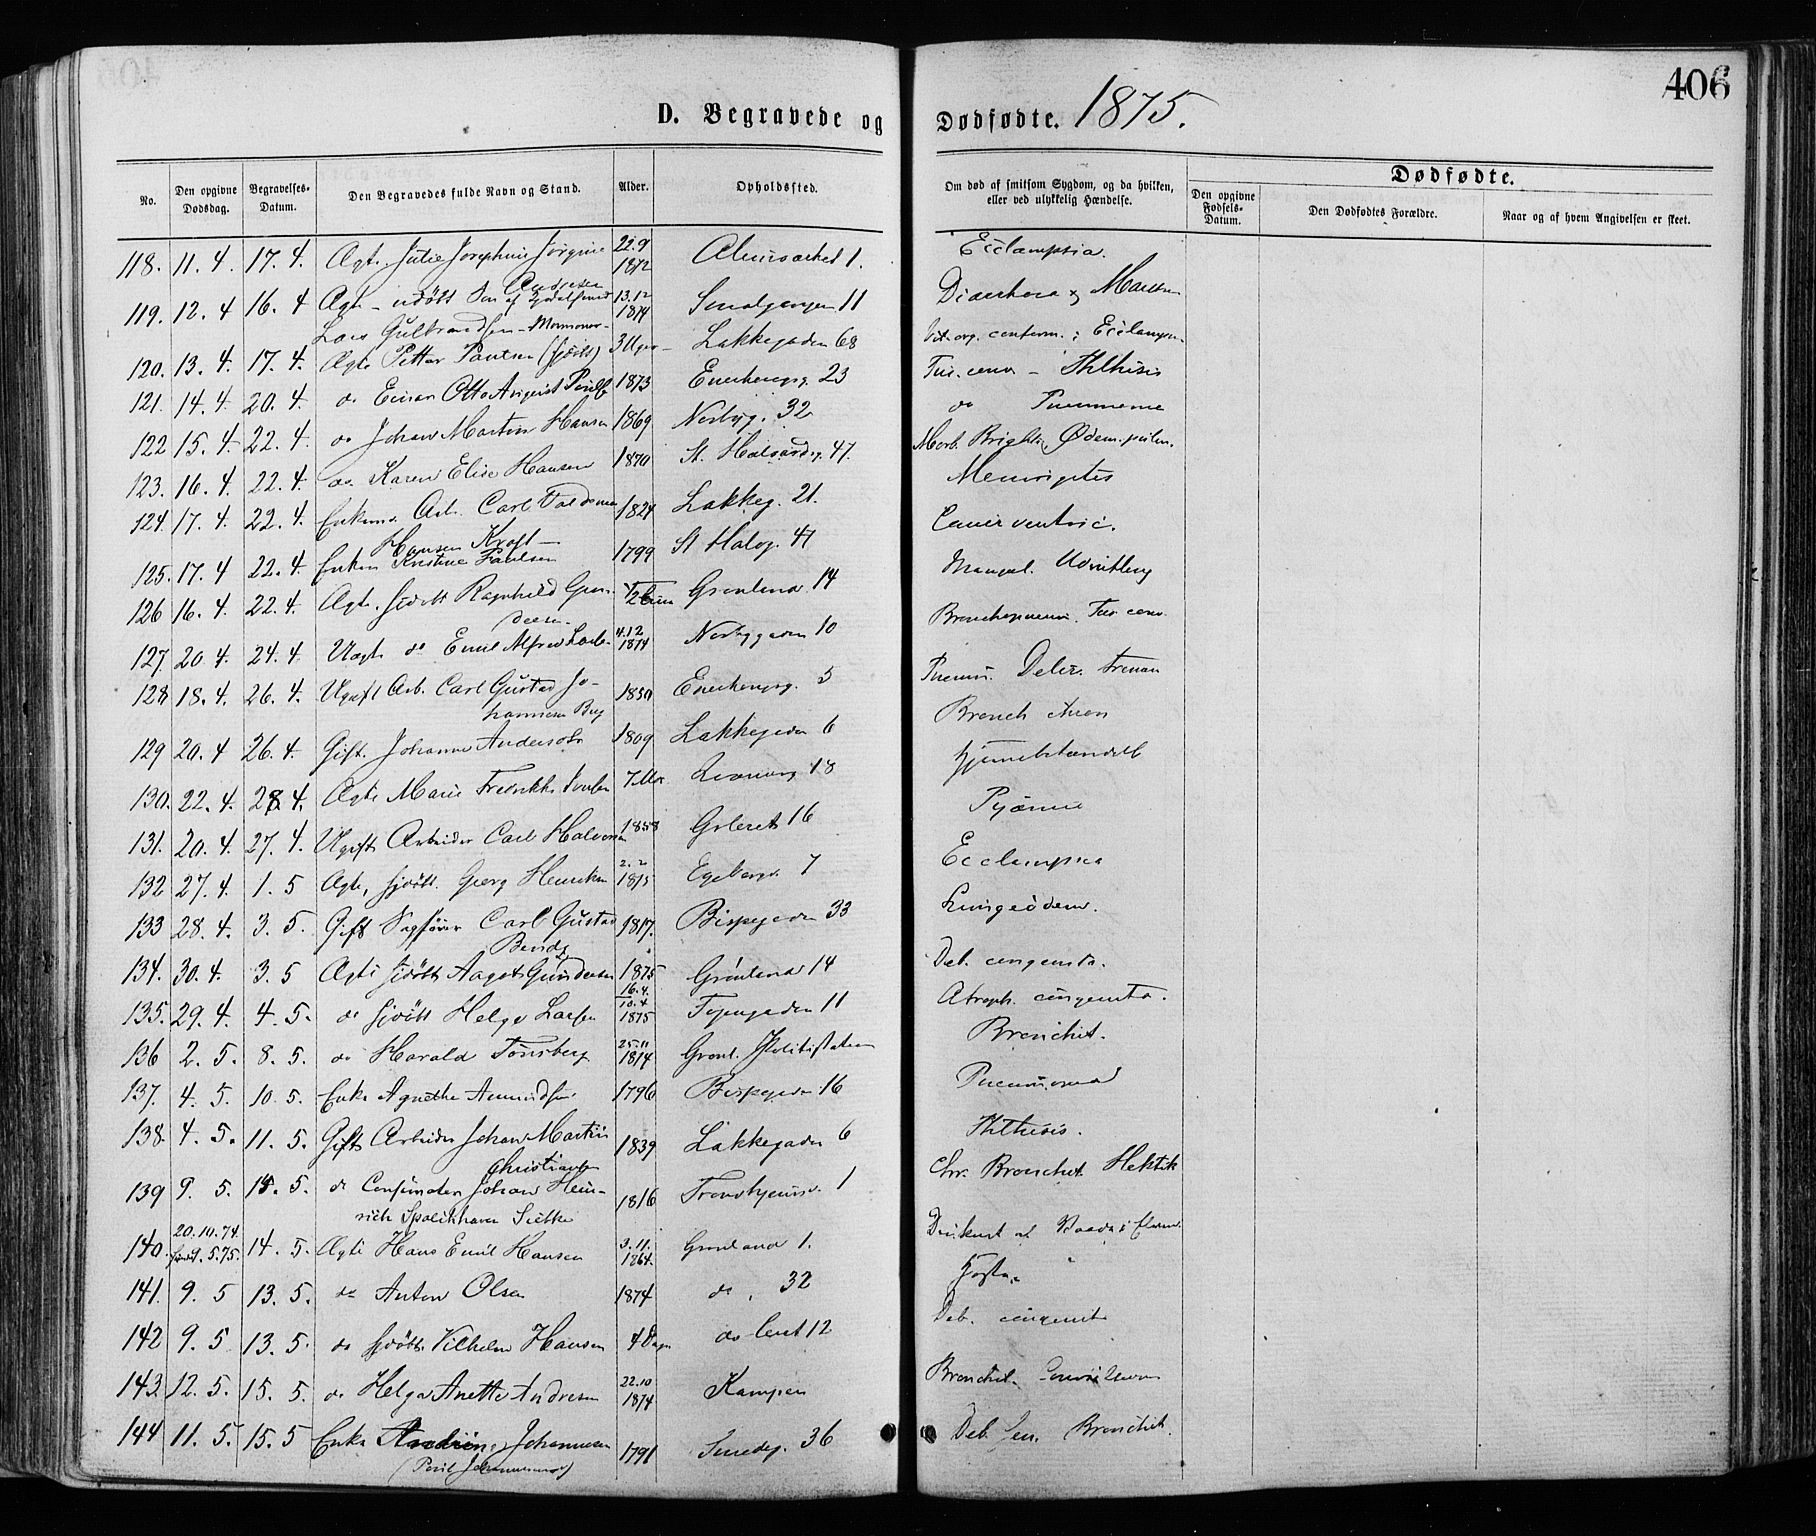 406
D. Begravede og Dødfødte. 1875.
No.
Den opgivne Dødsdag.
Begravelses-Datum.
Den Begravedes fulde Navn og Stand.
Alder.
Opholdssted.
Om død af smitsom Sygdom, og da hvilken, eller ved ulykkelig Hændelse.
Dødfødte.
Den opgivne Fødsels-Datum.
Den Dødfødtes Forældre.
Naar og af hvem Angivelsen er skeet.
118. 11. 4. 17. 4. Ægte Julie Josephine Jørgine 22.9 1872 1. Ecclampsia.
Andresen
119. 12. 4 16. 4 Ægte udøbt Søn af 13.12 1874 Smalgangen 11
Lars Gulbrandsen - Mormoner -
120. 13. 4. 17. 4. Ægte Petter Paulsen (hjdøbt) 3 Uger Lakkegaden 68
121. 14. 4. 20. 4. do Einar Otto 1873 Enerhaugsg. 23 Tus. conv - Phthisis
122 15. 4. 22. 4. do Johan Martin Hansen 1869 Norbyg. 32 do Pneumonie
123. 16. 4. 22. 4. do Karen Elise Hansen 1870 St. Halvardsg. 47. Morb. Brightii, Ødem. pulm.
124. 17. 4. 22. 4. Enkem. Arb. Carl Valdemar 1824 Lakkeg. 21. Meningitis
Hansen Kroft
125. 17. 4 22. 4. Enken Kristine Paulsen 1799 St Halvg. 47 Cancer ventric.
126 16. 4. 22. 4. Ægte. hjdøbt Ragnhild Gun- Grønland 14 Mangel. Udvikling
dersen
127. 20 4. 24. 4. Uægte do Emil Alfred 4.12 1874 Norbygaden 10 Bronchopneum. Tus. conv
128 18. 4. 26. 4. Ugift Arb. Carl Gustav Jo- 1850 Enerhaugsg. 5 Pneum. Delir. tremen
hannesen Berg
129 20. 4 26. 4. Gift Johanne Anderson 1809 Lakkegaden 6 Bronch chron
130. 22. 4. 28 4. Ægte Marie Fredrikke 7 Mdr. 18
131. 20. 4. 27. 4. Ugift Arbeider Carl Halvorsen 1858 Grleret 16 Pyæmie
132 27. 4. 1. 5 Ægte, hjdøbt. Georg Henriksen 2.2 1875 Egebergv. 7 Ecclampsia
133 28. 4. 3. 5. Gift Sagfører Carl Gustav 1817. Bispegaden 33 Lungeødem.
134. 30. 4. 3. 5 Ægte hjdøbt Aagot Gundersen 1875 16.4. Grønland 14 Deb. congenita.
135. 29. 4. 4. 5. do hjdøbt Helge Larsen 10.4 1875 Tøiengaden 11 Atroph. congenita.
136 2. 5. 8. 5. do Harald Tønsberg 25.11 1874 Grønl. Politistation Bronchit.
137. 4. 5. 10. 5. Enke Agnethe Amundsen 1796 Bispegaden 16 Pneumonia
138. 4. 5. 11. 5. Gift Arbeider Johan Martin 1839 Lakkegaden 6 Phthisis.
Christiansen
139 9. 5. 15. 5. do Johan Hein- 1816 Trondhjemsv. 1 Chr. Bronchit. Hektik
rich
140. 20. 10. 74. 14. 5. Ægte Hans Emil Hansen 3.11. 1864. Grønland 1.
141. 9. 5 13. 5. do Anton Olsen 1874 do. 32
142 9. 5 13. 5. do hjdøbt Vilhelm Hansen 4 Dage do Leret 12 Deb. congenit
143. 12. 5. 15. 5. do Helga Anette Andresen 22.10 1874 Kampen Bronchit.
144 11. 5. 15. 5 Enke Johannesen 1791 Smedg. 36 Deb. Sen. Bronchit.